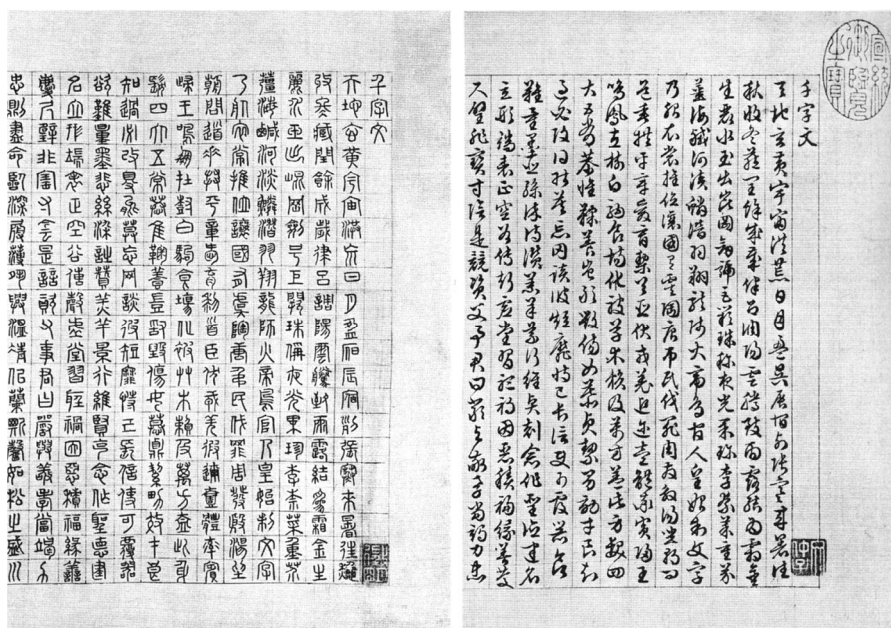 宣統御覽之寶
千字文
天地玄黃宇宙洪荒日月盈昃辰宿列張寒來暑往
秋收冬藏閏餘成歲律呂調陽雲騰致雨露結為霜金
生麗水玉出崑岡劍號巨闕珠稱夜光果珍李柰菜重芥
薑海鹹河淡鱗潛羽翔龍師火帝鳥官人皇始制文字
乃服衣裳推位讓國有虞陶唐弔民伐罪周發殷湯坐朝問
道垂拱平章愛育黎首臣伏戎羌遐邇壹體率賓歸王
鳴鳳在樹白駒食場化被草木賴及萬方蓋此身髮四
大五常恭惟鞠養豈敢毀傷女慕貞絜男效才良知
過必改得能莫忘罔談彼短靡恃己長信使可覆器欲
難量墨悲絲染詩讚羔羊景行維賢克念作聖德建名
立形端表正空谷傳聲虛堂習聽禍因惡積福緣善慶
尺璧非寶寸陰是競資父事君曰嚴與敬孝當竭力忠
千字文
天地玄黃宇宙洪荒日月盈昃辰宿列張寒來暑往秋
收冬藏閏餘成歲律呂調陽雲騰致雨露結為霜金生
麗水玉出崑岡劍號巨闕珠稱夜光果珍李柰菜重芥
薑海鹹河淡鱗潛羽翔龍師火帝鳥官人皇始制文字
乃服衣裳推位讓國有虞陶唐弔民伐罪周發殷湯坐
朝問道垂拱平章愛育黎首臣伏戎羌遐邇壹體率賓
歸王鳴鳳在樹白駒食場化被草木賴及萬方蓋此身
髮四大五常恭惟鞠養豈敢毀傷女慕貞絜男效才良
知過必改得能莫忘罔談彼短靡恃己長信使可覆器
欲難量墨悲絲染詩讚羔羊景行維賢克念作聖德建
名立形端表正空谷傳聲虛堂習聽禍因惡積福緣善
慶尺璧非寶寸陰是競資父事君曰嚴與敬孝當竭力
忠則盡命臨深履薄夙興溫凊似蘭斯馨如松之盛川